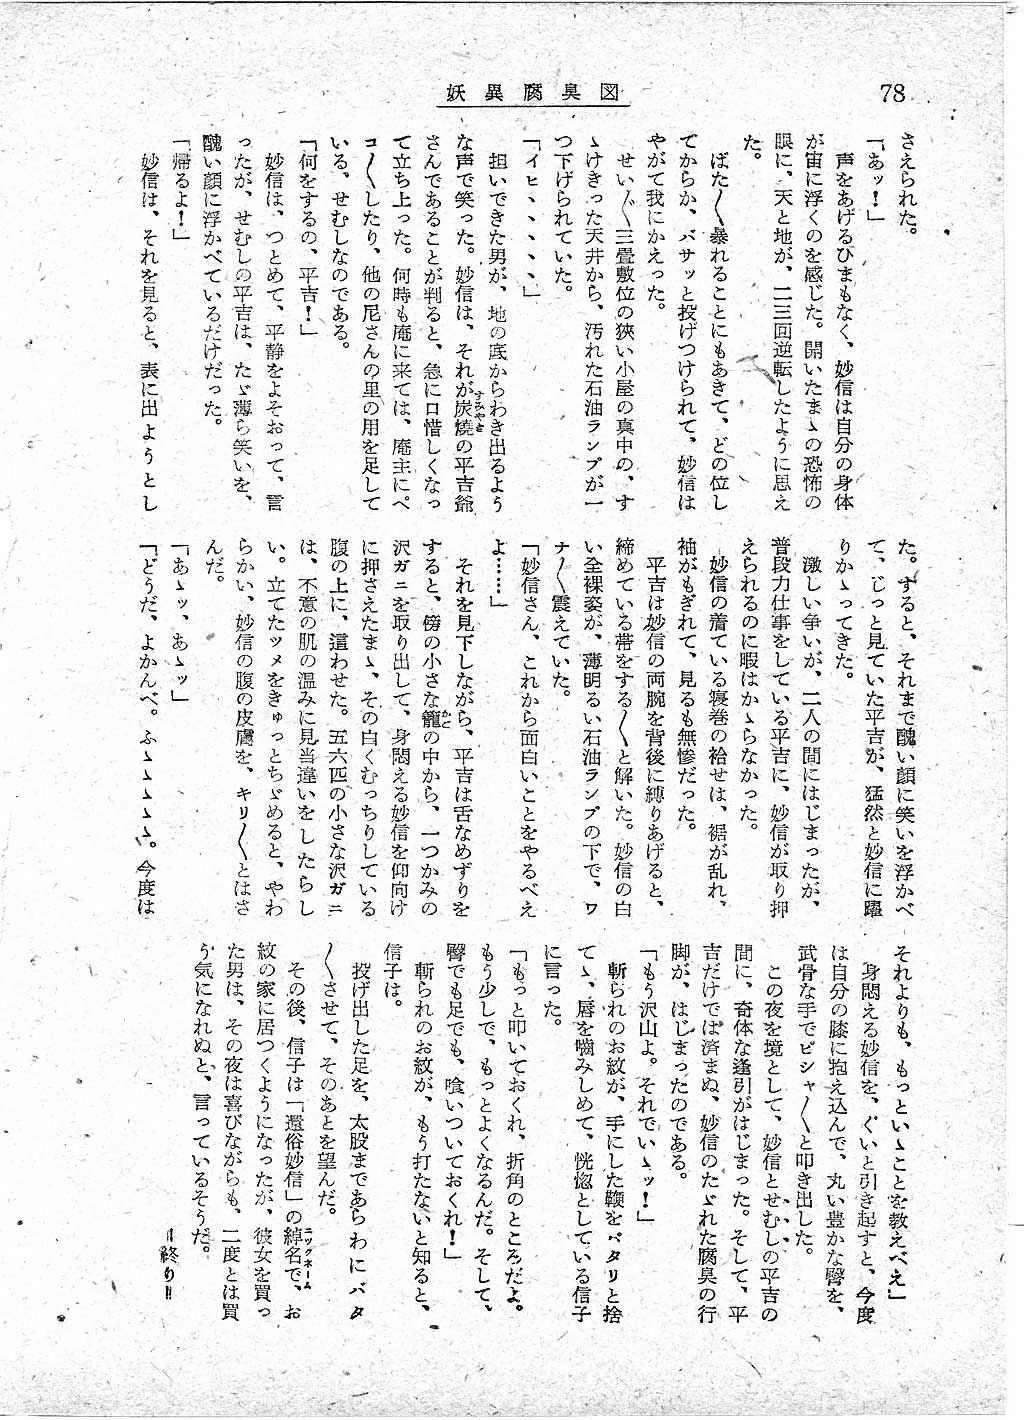 78
妖異腐臭図
さえられた。
「あッ！」
声をあげるひまもなく、妙信は自分の身体
が宙に浮くのを感じた。開いたまゝの恐怖の
眼に、天と地が、二三回逆転したように思え
た。
ばた〳〵暴れることにもあきて、どの位し
てからか、バサッと投げつけられて、妙信は
やがて我にかえった。
せい〴〵三畳敷位の狭い小屋の真中の、す
ゝけきった天井から、汚れた石油ランプが一
つ下げられていた。
「イヒヽヽヽヽヽ」
担いできた男が、地の底からわき出るよう
な声で笑った。妙信は、それが炭焼の平吉爺
すみやき
さんであることが判ると、急に口惜しくなっ
て立ち上った。何時も庵に来ては、庵主にペ
コ〳〵したり、他の尼さんの里の用を足して
いる、せむしなのである。
「何をするの、平吉！」
妙信は、つとめて、平静をよそおって、言
ったが、せむしの平吉は、たゞ薄ら笑いを、
醜い顔に浮かべているだけだった。
「帰るよ！」
妙信は、それを見ると、表に出ようとし
た。すると、それまで醜い顔に笑いを浮かべ
て、じっと見ていた平吉が、猛然と妙信に躍
りかゝってきた。
激しい争いが、二人の間にはじまったが、
普段力仕事をしている平吉に、妙信が取り押
えられるのに暇はかゝらなかった。
妙信の着ている寝巻の袷せは、裾が乱れ、
袖がもぎれて、見るも無惨だった。
平吉は妙信の両腕を背後に縛りあげると、
締めている帯をする〳〵と解いた。妙信の白
い全裸姿が、薄明るい石油ランプの下で、ワ
ナ〳〵震えていた。
「妙信さん、これから面白いことをやるべえ
よ……」
それを見下しながら、平吉は舌なめずりを
すると、傍の小さな籠の中から、一つかみの
かご
沢ガニを取り出して、身悶える妙信を仰向け
に押さえたまゝ、その白くむっちりしている
腹の上に、這わせた。五六匹の小さな沢ガニ
は、不意の肌の温みに見当違いをしたらし
い。立てたツメをきゅっとちゞめると、やわ
らかい、妙信の腹の皮膚を、キリ〳〵とはさ
んだ。
「あゝッ、あゝッ」
「どうだ、よかんべ。ふゝゝゝゝゝ。今度は
それよりも、もっといゝことを教えべえ」
身悶える妙信を、ぐいと引き起すと、今度
は自分の膝に抱え込んで、丸い豊かな臀を、
武骨な手でピシャ〳〵と叩き出した。
この夜を境として、妙信とせむしの平吉の
間に、奇体な逢引がはじまった。そして、平
吉だけでは済まぬ、妙信のたゞれた腐臭の行
脚が、はじまったのである。
「もう沢山よ。それでいゝッ！」
斬られのお紋が、手にした鞭をバタリと捨
てゝ、唇を噛みしめて、恍惚としている信子
に言った。
「もっと叩いておくれ、折角のところだよ。
もう少しで、もっとよくなるんだ。そして、
臀でも足でも、喰いついておくれ！」
斬られのお紋が、もう打たないと知ると、
信子は。
投げ出した足を、太股まであらわにバタ
〳〵させて、そのあとを望んだ。
その後、信子は「還俗妙信」の綽名で、お
ニックネーム
紋の家に居つくようになったが、彼女を買っ
た男は、その夜は喜びながらも、二度とは買
う気になれぬと、言っているそうだ。
＝終り＝